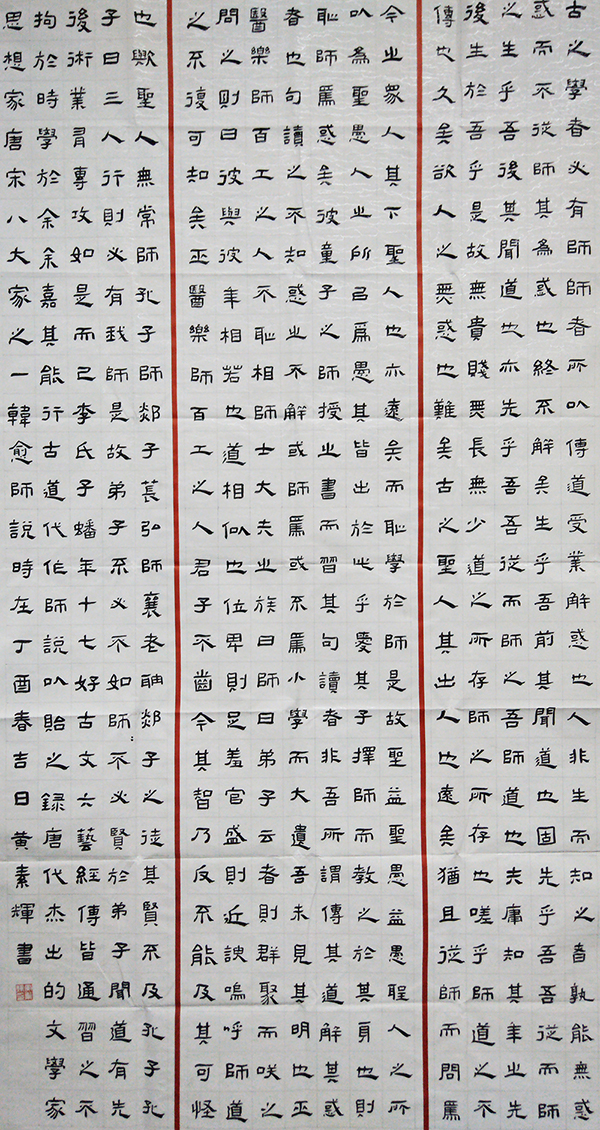 古之學者必有師師者所以傳道受業解惑也人非生而知之者孰能無惑
惑而不從師其為惑也終不解矣生乎吾前其聞道也固先乎吾吾從而師
之生乎吾後其聞道也亦先乎吾吾從而師之吾師道也夫庸知其年之先
後生於吾乎是故無貴賤無長無少道之所存師之所存也嗟乎師道之不
傳也久矣欲人之無惑也難矣古之聖人其出人也遠矣猶且從師而問焉
今之眾人其下聖人也亦遠矣而恥學於師是故聖益聖愚益愚聖人之所
以為聖愚人之所以為愚其皆出於此乎愛其子擇師而教之於其身也則
恥師焉惑矣彼童子之師授之書而習其句讀者非吾所謂傳其道解其惑
者也句讀之不知惑之不解或師焉或不焉小學而大遺吾未見其明也巫
醫樂師百工之人不恥相師士大夫之族曰師曰弟子云者則群聚而笑之
問之則曰彼與彼年相若也道相似也位卑則足羞官盛則近諛嗚呼師道
之不復可知矣巫醫樂師百工之人君子不齒今其智乃反不能及其可怪
也歟聖人無常師孔子師郯子萇弘師襄老聃郯子之徒其賢不及孔子孔
子曰三人行則必有我師是故弟子不必不如師不必賢於弟子聞道有先
後術業有專攻如是而已李氏子蟠年十七好古文六藝經傳皆通習之不
拘於時學於余余嘉其能行古道代作師說以貽之錄唐代杰出的文學家
思想家唐宋八大家之一韓愈師說時在丁酉春吉日黃素輝書